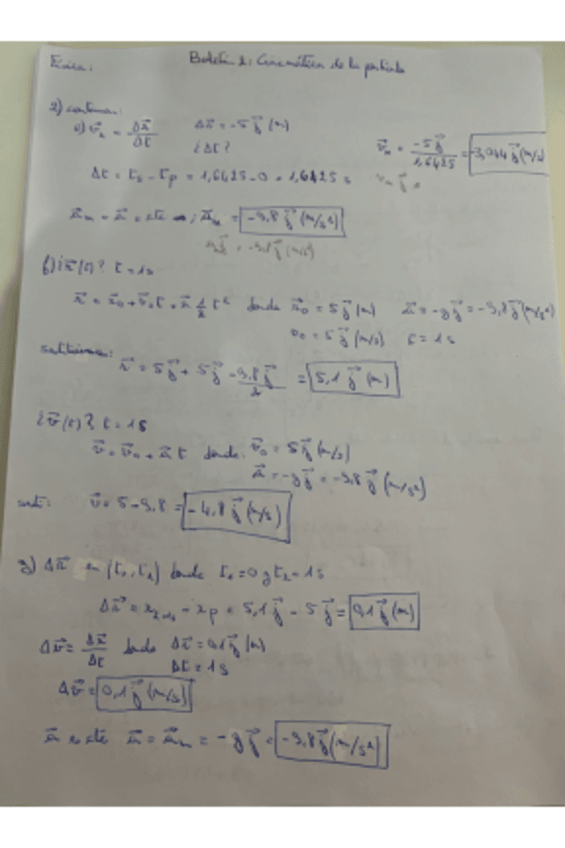 Física: Boletín 2: Cinemática de la partícula
2) continua:
c) v⃗ₘ = Δr⃗/Δt Δr⃗ = -5 j⃗ (m) v⃗ₘ = -5 j⃗/1,6425 = -3,044 j⃗ (m/s)
¿Δt?
Δt = t₅ - tₚ = 1,6425 - 0 = 1,6425 s
a⃗ₘ = a⃗ = cte a⃗ₘ = -9,8 j⃗ (m/s²)
= -9,8 j⃗ (m/s²)
f) ¿r⃗(t)? t = 1s
r⃗ = r⃗₀ + v⃗₀t + a⃗ ½ t² donde r⃗₀ = 5 j⃗ (m) a⃗ = -g j⃗ = -9,8 j⃗ (m/s²)
v₀ = 5 j⃗ (m/s) t = 1s
sustituimos: r⃗ = 5 j⃗ + 5 j⃗ - 9,8 j⃗/2 = 5,1 j⃗ (m)
¿v⃗(t)? t = 1s
v⃗ = v⃗₀ + a⃗ t donde: v⃗₀ = 5 j⃗ (m/s)
a⃗ = -g j⃗ = -9,8 j⃗ (m/s²)
sust: v⃗ = 5 - 9,8 = -4,8 j⃗ (m/s)
g) Δr⃗ en (t₁, t₂) donde t₁ = 0 y t₂ = 1s
Δr⃗ = - rₚ = 5,1 j⃗ - 5 j⃗ = 0,1 j⃗ (m)
Δv⃗ = Δr⃗/Δt donde Δr⃗ = 0,1 j⃗ (m)
Δt = 1s
Δv⃗ = 0,1 j⃗ (m/s)
a⃗ = cte a⃗ = a⃗ₘ = -g j⃗ = -9,8 j⃗ (m/s²)